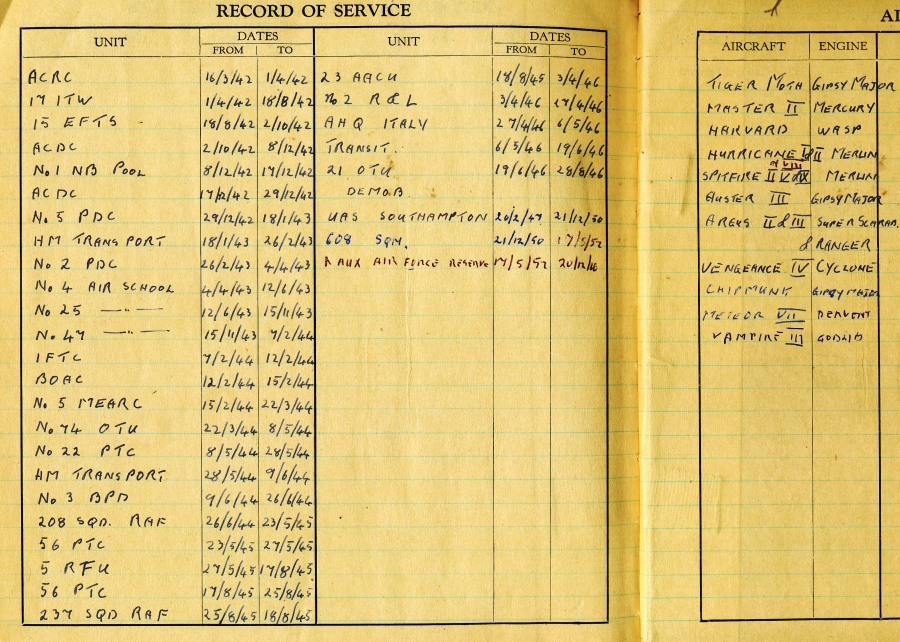 RECORD OF SERVICE
UNIT DATES FROM TO UNIT DATES FROM TO
ACRC 16/3/42 1/4/42
17 ITW 1/4/42 18/8/42
15 EFTS 18/8/42 2/10/42
ACDC 2/10/42 8/12/42
No 1 NB POOL 8/12/42 17/12/42
ACDC 17/12/42 29/12/42
No. 5 PDC 29/12/42 18/1/43
HM TRANSPORT 18/1/43 26/2/43
No 2 PDC 26/2/43 4/4/43
No 4 AIR SCHOOL 4/4/43 12/6/43
No 25 —"— 12/6/43 15/11/43
No. 47 —"— 15/11/43 7/2/44
IFTC 7/2/44 12/2/44
BOAC 12/2/44 15/2/44
No 5 MEARC 15/2/44 22/3/44
No 74 OTU 22/3/44 8/5/44
No 22 PTC 8/5/44 28/5/44
HM TRANSPORT 28/5/44 9/6/44
No 3 BPD 9/6/44 26/6/44
208 SQD. RAF 26/6/44 23/5/45
56 PTC 23/5/45 27/5/45
5 RFU 27/5/45 17/8/45
56 PTC 17/8/45 25/8/45
237 SQD RAF 25/8/45 18/8/45
23 AACU 18/8/45 3/4/46
No 2 R&L 3/4/46 27/4/46
AHQ ITALY 27/4/46 6/5/46
TRANSIT. 6/5/46 19/6/46
21 OTU 19/6/46 28/8/46
DEMOB.
UAS SOUTHAMPTON 20/2/47 21/12/50
608 SQN. 21/12/50 17/5/52
R AUX AIR FORCE RESERVE 17/5/52
AIRCRAFT ENGINE
TIGER MOTH GIPSY MAJOR
MASTER II MERCURY
HARVARD WASP
HURRICANE II MERLIN
SPITFIRE II V VIII & IX MERLIN
AUSTER III GIPSY MAJOR
ARGUS II & III SUPER SCARAB
& RANGER
VENGEANCE IV CYCLONE
CHIPMUNK GIPSY MAJOR
METEOR VII DERVENT
VAMPIRE III GOBLIN